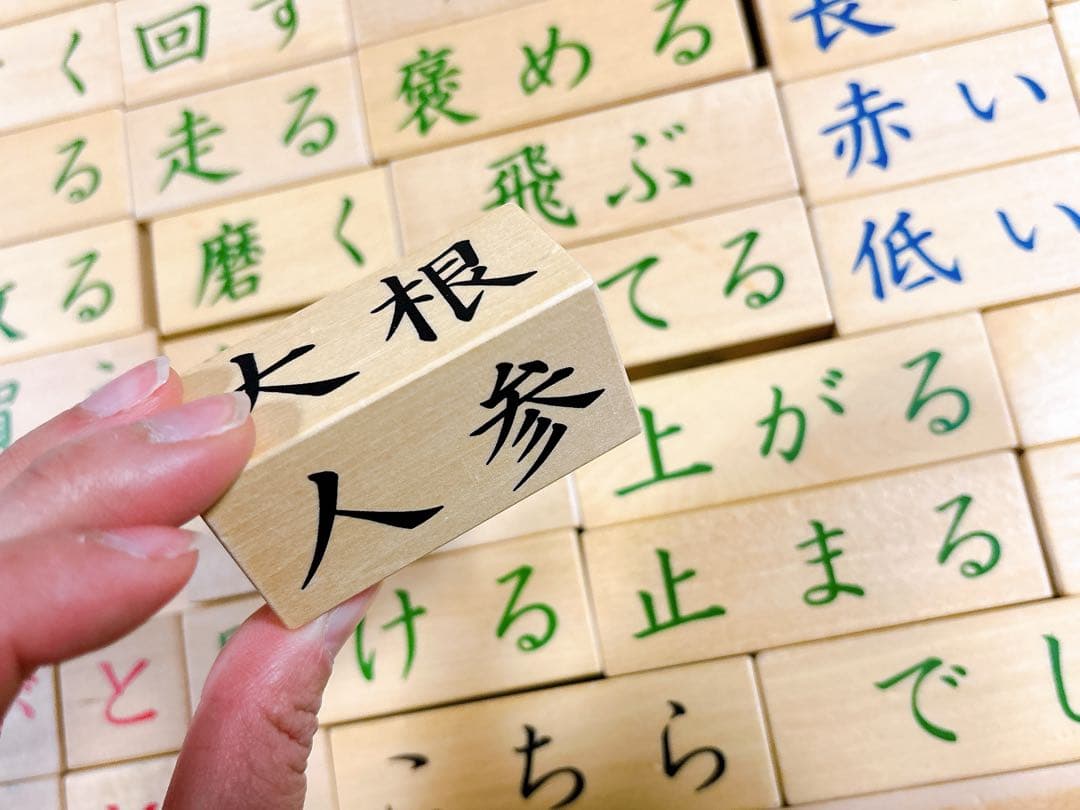 く
回す
褒める
長
る
走る
飛ぶ
赤い
る
磨く
てる
低い
大根
人参
上がる
止まる
ける
と
こちら
でし